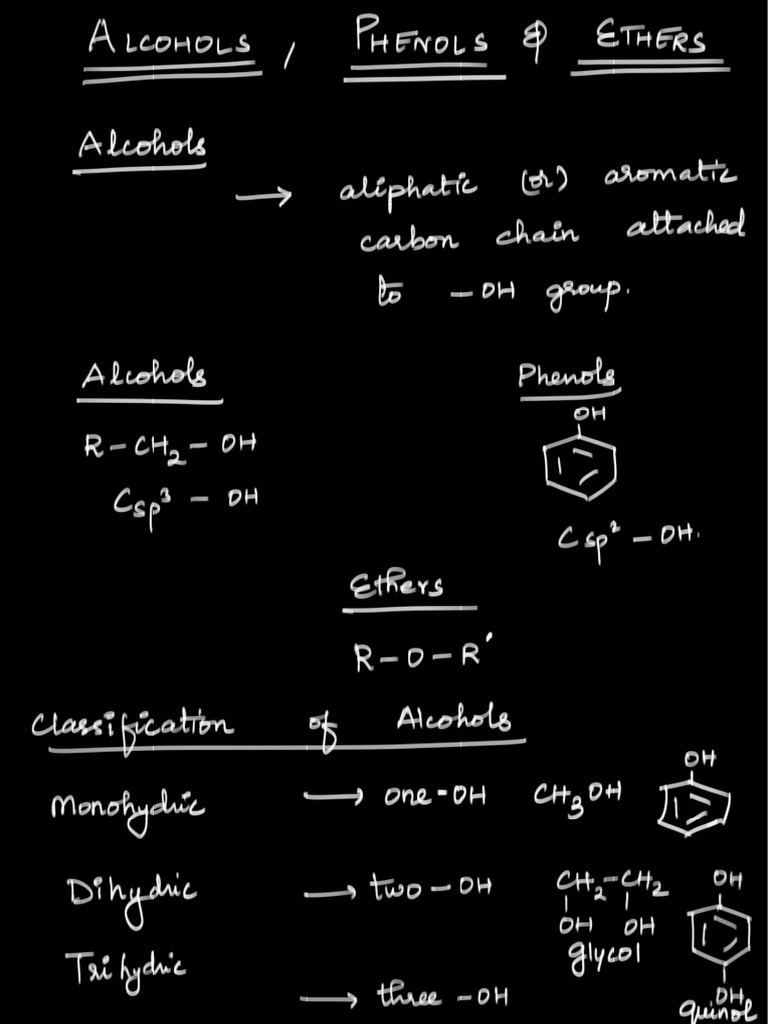 ALCOHOLS, PHENOLS & ETHERS
Alcohols
→ aliphatic (or) aromatic
carbon chain attached
to -OH group.
Alcohols
Phenols
R-CH₂-OH
OH
Csp³ - OH
Csp² - OH.
Ethers
R-O-R'
Classification of Alcohols
Monohydric → one-OH CH₃OH OH
Dihydric → two-OH CH₂-CH₂ OH
OH OH
glycol
Trihydric → three-OH OH
quinol